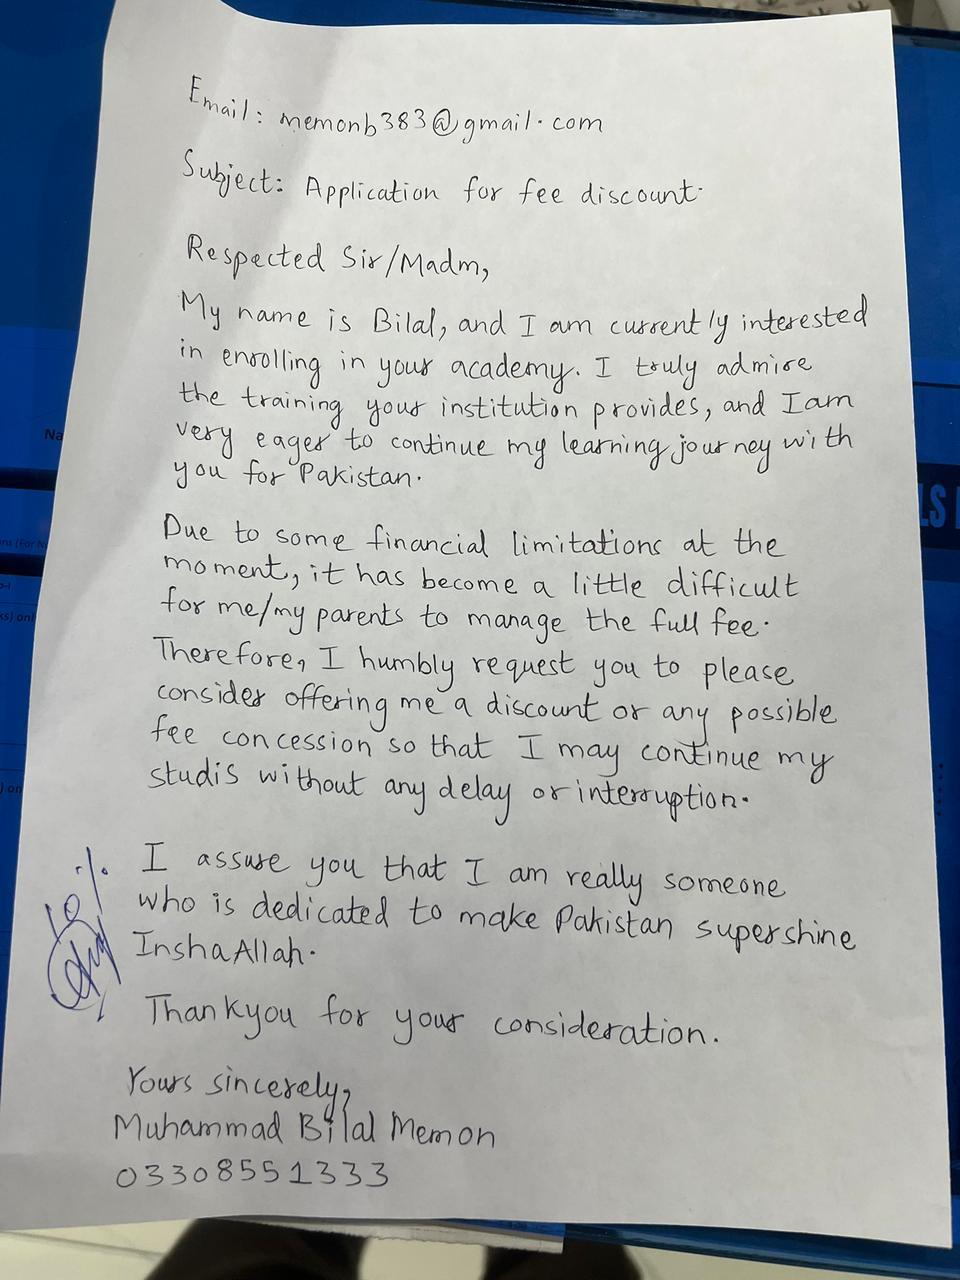 Email: memonb383@gmail.com
Subject: Application for fee discount.
Respected Sir/Madm,
My name is Bilal, and I am currently interested
in enrolling in your academy. I truly admire
the training your institution provides, and I am
very eager to continue my learning journey with
you for Pakistan.
Due to some financial limitations at the
moment, it has become a little difficult
for me/my parents to manage the full fee.
Therefore, I humbly request you to please
consider offering me a discount or any possible
fee concession so that I may continue my
studis without any delay or interruption.
I assure you that I am really someone
who is dedicated to make Pakistan supershine
InshaAllah.
10%
Thankyou for your consideration.
Yours sincerely,
Muhammad Bilal Memon
03308551333